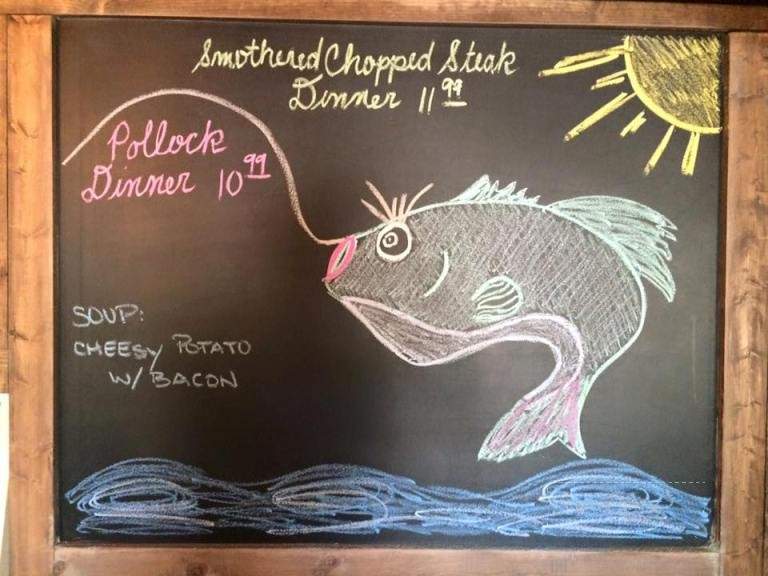 Smothered Chopped Steak
Dinner 11 99
Pollock
Dinner 10 99
SOUP:
CHEESY POTATO
W/ BACON